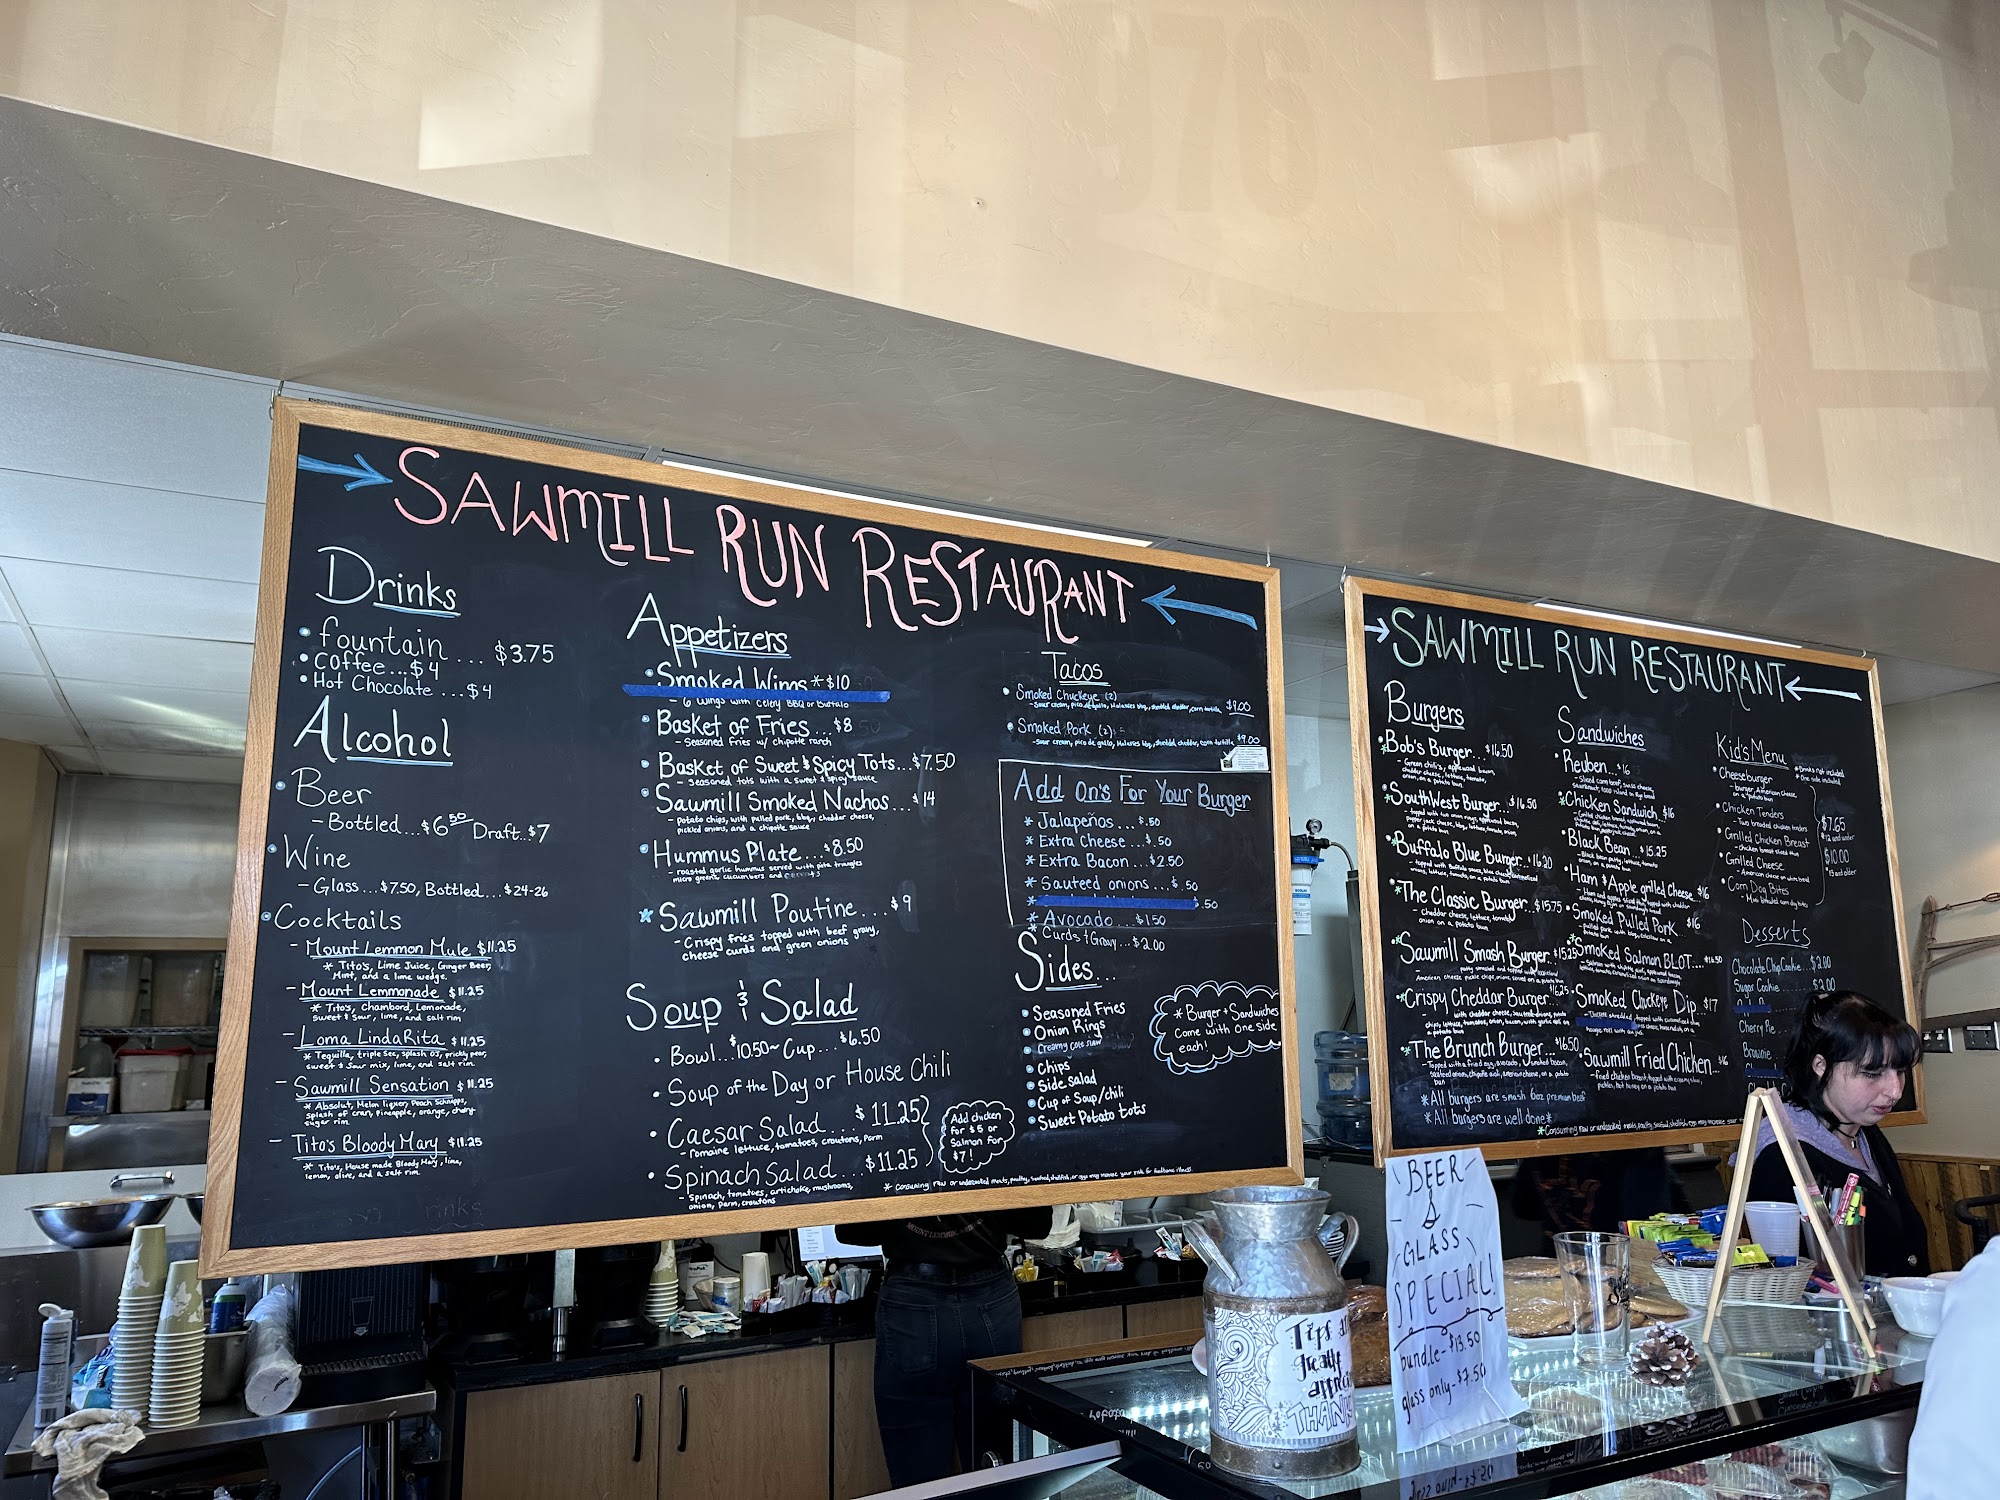 SAWMILL RUN RESTAURANT
Drinks
fountain ... $3.75
Coffee ... $4
Hot Chocolate ... $4
Alcohol
Beer
- Bottled... $6.50 Draft...$7
Wine
- Glass... $7.50, Bottled.... $24-26
Cocktails
- Mount Lemmon Mule $11.25
* Tito's, Lime Juice, Ginger Beer,
Mint, and a lime wedge.
- Mount Lemmonade $11.25
* Tito's, Chambord, Lemonade,
sweet & sour, lime, and salt rim
- Loma LindaRita $11.25
* Tequilla, triple sec, splash OJ, prickly pear,
sweet & sour mix, lime, and salt rim
- Sawmill Sensation $11.25
* Absolut, Melon liquer, Peach Schnapps,
splash of cran, pineapple, orange, cherry
sugar rim
- Tito's Bloody Mary $11.25
* Tito's, House made Bloody Mary, lime,
lemon, olive, and a salt rim.
Appetizers
Smoked Wings * $10
- 6 wings with Celery BBQ or Buffalo
Basket of Fries ... $8
- Seasoned fries w/ chipotle ranch
Basket of Sweet & Spicy Tots... $7.50
- Seasoned tots with a sweet & spicy sauce
Sawmill Smoked Nachos ... $14
- potato chips, with pulled pork, bbq, cheddar cheese,
pickled onions, and a chipotle sauce
Hummus Plate ... $8.50
- roasted garlic hummus served with pita triangles
micro greens, cucumbers and
* Sawmill Poutine... $9
- Crispy fries topped with beef gravy,
cheese curds and green onions
Soup & Salad
Bowl... $10.50 ~ Cup... $6.50
Soup of the Day or House Chili
Caesar Salad ... $11.25
- romaine lettuce, tomatoes, croutons, parm
Spinach Salad ... $11.25
- Spinach, tomatoes, artichoke, mushrooms,
onion, parm, croutons
Add chicken
for $5 or
Salmon for
$7!
Tacos
Smoked Chuckeye (2)
- Sour cream, pico de gallo, Molasses bbq, shredded cheddar, corn tortilla $9.00
Smoked Pork (2)
- Sour cream, pico de gallo, Molasses bbq, shredded cheddar, corn tortilla $9.00
Add On's For Your Burger
* Jalapeños ... $.50
* Extra Cheese ... $.50
* Extra Bacon ... $2.50
* Sauteed onions ... $.50
* $.50
* Avocado ... $1.50
* Curds & Gravy ... $2.00
Sides...
Seasoned Fries
Onion Rings
Creamy cole slaw
Chips
Side salad
Cup of Soup/chili
Sweet Potato tots
* Burger + Sandwiches
Come with one side
each!
* Consuming raw or undercooked meats, poultry, seafood, shellfish, or eggs may increase your risk for foodborne illness.
SAWMILL RUN RESTAURANT
Burgers
*Bob's Burger... $16.50
- Green chili's, applewood bacon,
cheddar cheese, lettuce, tomato,
onion, on a potato bun
*SouthWest Burger... $16.50
- topped with two onion rings, applewood bacon,
pepper jack cheese, bbq, lettuce, tomato, onion,
on a potato bun
*Buffalo Blue Burger... 16.20
*The Classic Burger... $15.75
- Cheddar cheese, lettuce, tomato
onion on a potato bun
*Sawmill Smash Burger... $15.25
*Crispy Cheddar Burger... $16.25
*The Brunch Burger... $16.50
- Topped with a fried egg, avocado, smoked bacon,
*All burgers are smash 6oz premium beef
*All burgers are well done*
Sandwiches
Reuben... $16
- Sliced corn beef, swiss,
sauerkraut, 1000 island on Rye bread
*Chicken Sandwich $16
Black Bean... $15.25
- Black bean patty, lettuce, tomato
onion, on a potato bun
Ham & Apple grilled Cheese $16
*Smoked Pulled Pork $16
*Smoked Salmon BLOT... $16.50
Smoked Chuckeye Dip... $17
Sawmill Fried Chicken... $16
*Consuming raw or undercooked meats, poultry, seafood, shellfish, eggs may increase your
Kid's Menu
* Drinks not included
* One side included
Cheeseburger
- burger, American Cheese,
on a potato bun
Chicken Tenders
- Two breaded chicken tenders
Grilled Chicken Breast
- chicken breast sliced thin
Grilled Cheese
- American cheese on white bread
Corn Dog Bites
- Mini breaded corn dog bites
$7.65
*12 and under
$10.00
*13 and older
Desserts
Chocolate Chip Cookie... $2.00
Sugar Cookie... $2.00
Cherry Pie
Brownie
BEER
&
GLASS
SPECIAL!
bundle- $13.50
glass only- $7.50
Tips are
greatly
appreci
THANK